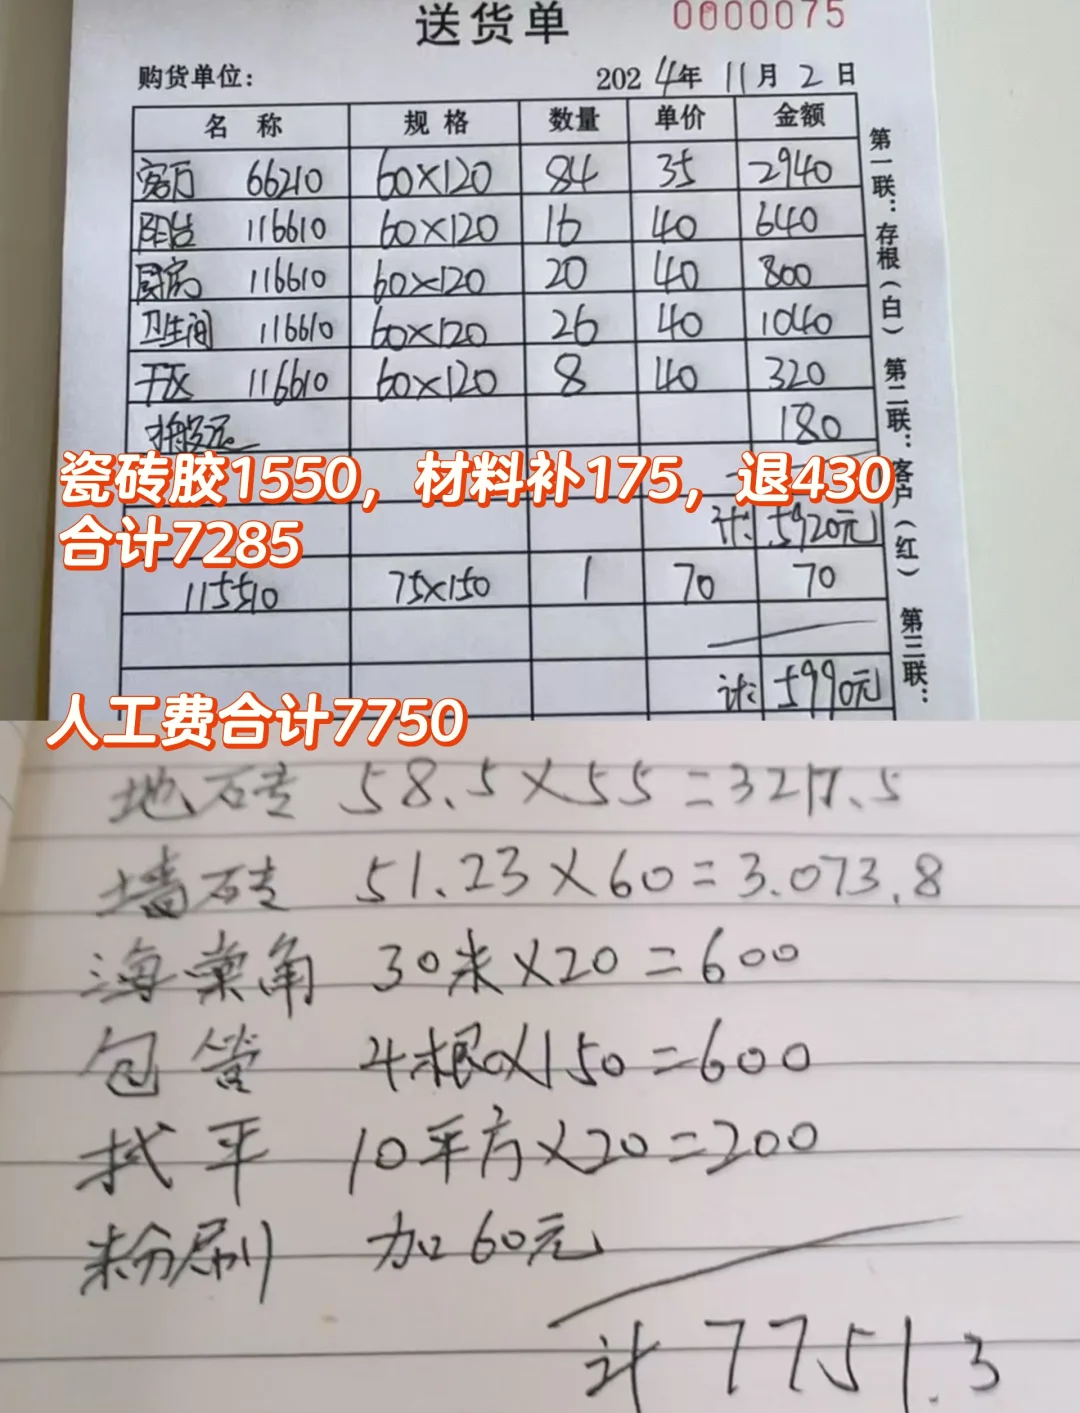 送货单 0000075
购货单位： 2024年11月2日
名 称 规 格 数量 单价 金额
客厅 66210 60×120 84 35 2940
阳台 116610 60×120 16 40 640
厨房 116610 60×120 20 40 800
卫生间 116610 60×120 26 40 1040
干区 116610 60×120 8 40 320
搬运 180
瓷砖胶1550，材料补175，退430
合计7285
计: 5920元
115510 75×150 1 70 70
计: 5990元
第一联：存根（白） 第二联：客户（红） 第三联：
人工费合计7750
地砖 58.5×55=3217.5
墙砖 51.23×60=3.073.8
海棠角 30米×20=600
包管 4根×150=600
找平 10平方×20=200
粉刷 加60元
计 7751.3